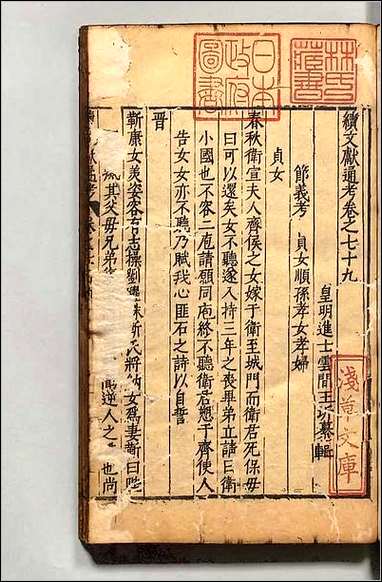 續文獻通考卷之七十九
皇明進士雲間王圻纂輯
節義考 貞女順孫孝女孝婦
貞女
春秋衛宣夫人齊侯之女嫁于衛至城門而衛君死保母
曰可以還矣女不聽遂入持三年之喪畢弟立請曰衛
小國也不容二庖請願同庖終不聽衛君愬于齊使人
告女女亦不聽乃賦我心匪石之詩以自誓
晉
靳康女美姿容有志操劉曜 靳氏將納女為妻辭曰陛
其父母兄弟 逆人之 也尚
林氏藏書
日本政府圖書
淺草文庫